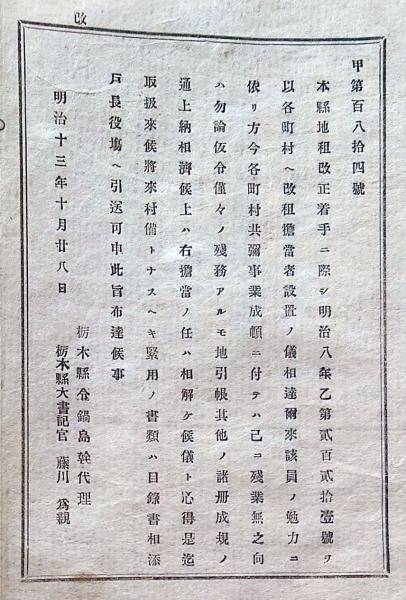 改
甲第百八拾四號
本縣地租改正着手ニ際シ明治八年乙第貳百貳拾壹號ヲ
以各町村ヘ改租擔當者設置ノ儀相達爾來該員ノ勉力ニ
依リ方今各町村共彌事業成頓ニ付テハ已ニ殘業無之向
ハ勿論仮令僅々ノ殘務アルモ地引帳其他ノ諸册成規ノ
通上納相濟候上ハ右擔當ノ任ハ相解ケ候儀ト心得是迄
取扱來候將來村備トナスヘキ緊用ノ書類ハ目錄書相添
戸長役塲ヘ引送可申此旨布達候事
明治十三年十月廿八日
栃木縣令鍋島幹代理
栃木縣大書記官 藤川爲親